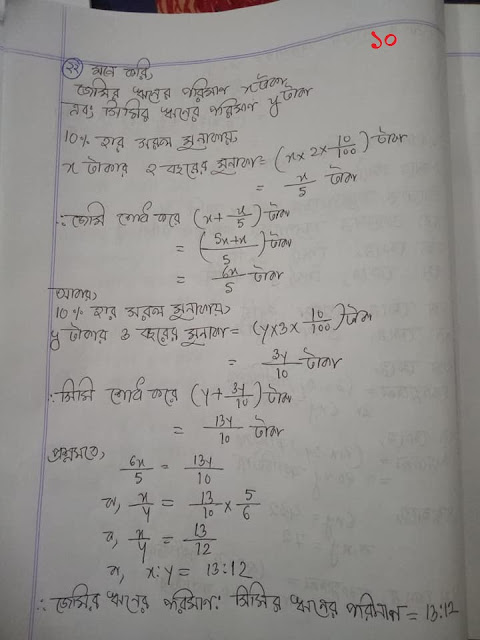 ১০
২২ মনে করি,
জেসির ঋনের পরিমাণ x টাকা
এবং সিসির ঋনের পরিমাণ y টাকা
10% হার সরল মুনাফায়,
x টাকার ২ বছরের মুনাফা = (x × 2 × 10/100) টাকা
= x/5 টাকা
∴ জেসি শোধ করে (x + x/5) টাকা
= (5x+x/5) টাকা
= 6x/5 টাকা
আবার,
10% হার সরল মুনাফায়,
y টাকার ৩ বছরের মুনাফা = (y×3×10/100) টাকা
= 3y/10 টাকা
∴ সিসি শোধ করে (y + 3y/10) টাকা
= 13y/10 টাকা
প্রশ্নমতে,
6x/5 = 13y/10
বা, x/y = 13/10 × 5/6
বা, x/y = 13/12
বা, x:y = 13:12
∴ জেসির ঋনের পরিমাণ: সিসির ঋনের পরিমাণ = 13:12